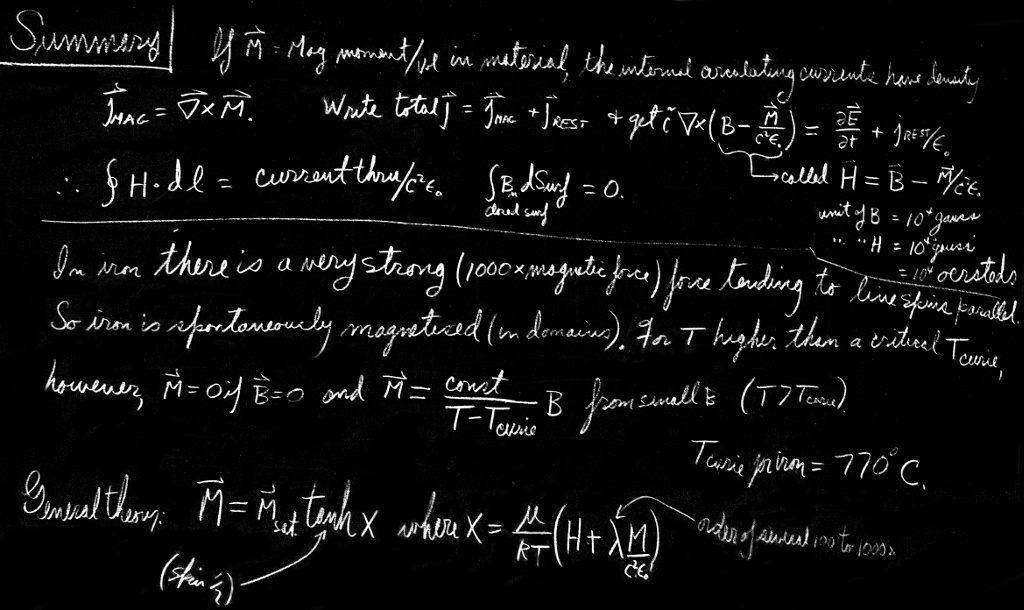 Summary
If M⃗ = Mag moment/vol in material, the internal circulating currents have density
j⃗MAG = ∇⃗×M⃗. Write total j⃗ = j⃗MAG + j⃗REST + get c² ∇×(B − M⃗/c²ε₀) = ∂E⃗/∂t + jREST/ε₀
→ called H⃗ = B⃗ − M⃗/c²ε₀
∴ ∮ H·dl = current thru/c²ε₀ ∫Bₙ dSurf = 0.
closed surf
unit of B = 10⁴ gauss
" " H = 10⁴ gauss
= 10⁴ oersteds
In iron there is a very strong (1000 × magnetic force) force tending to line spins parallel.
So iron is spontaneously magnetized (in domains). For T higher than a critical Tcurie,
however, M⃗ = 0 if B⃗ = 0 and M⃗ = const/(T − Tcurie) B from small B (T > Tcurie)
Tcurie for iron = 770°C.
General theory: M⃗ = M⃗sat. tanh x where x = μ/kT (H + λ M/c²ε₀)
order of several 100 to 1000.
(spin ½)